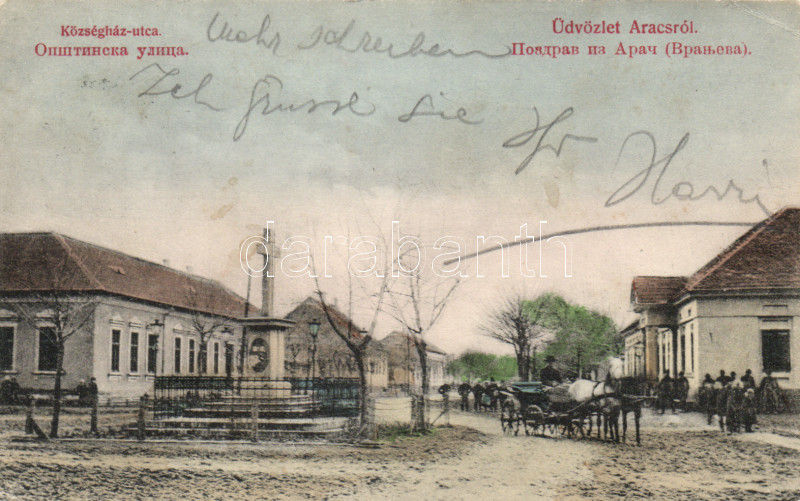 Községház-utca.
Општинска улица.
Üdvözlet Aracsról.
Поздрав из Арач (Врањева).
schreiben
Ich Grusse Sie
Ihr Harri
darabanth